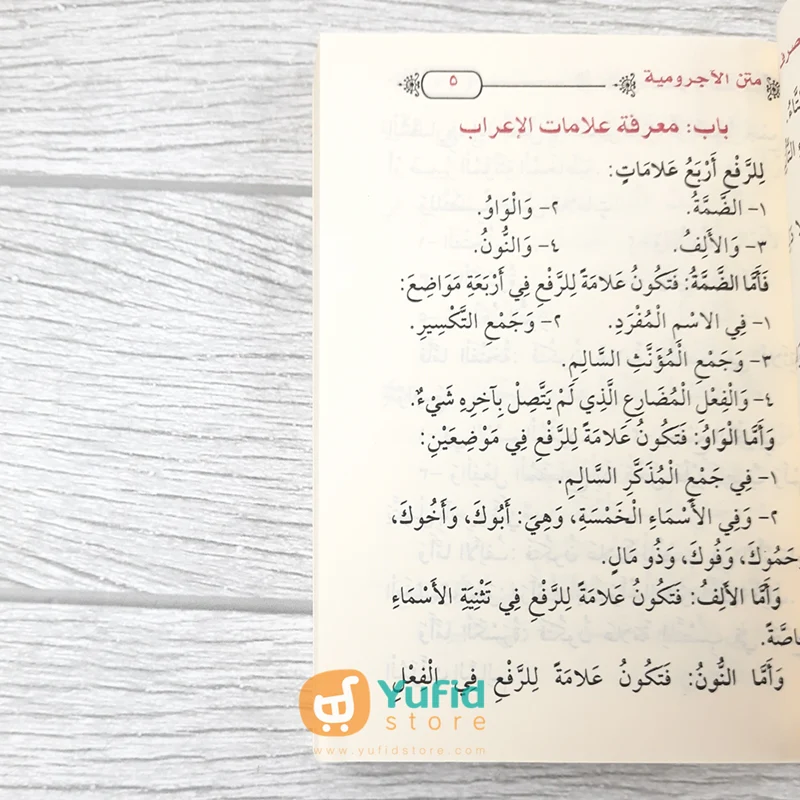 متن الآجرومية ٥
باب: معرفة علامات الإعراب
لِلرَّفْعِ أَرْبَعُ عَلَامَاتٍ:
١- الضَّمَّةُ. ٢- وَالْوَاوُ.
٣- وَالأَلِفُ. ٤- وَالنُّونُ.
فَأَمَّا الضَّمَّةُ: فَتَكُونُ عَلَامَةً لِلرَّفْعِ فِي أَرْبَعَةِ مَوَاضِعَ:
١- فِي الِاسْمِ الْمُفْرَدِ. ٢- وَجَمْعِ التَّكْسِيرِ.
٣- وَجَمْعِ الْمُؤَنَّثِ السَّالِمِ.
٤- وَالْفِعْلِ الْمُضَارِعِ الَّذِي لَمْ يَتَّصِلْ بِآخِرِهِ شَيْءٌ.
وَأَمَّا الْوَاوُ: فَتَكُونُ عَلَامَةً لِلرَّفْعِ فِي مَوْضِعَيْنِ:
١- فِي جَمْعِ الْمُذَكَّرِ السَّالِمِ.
٢- وَفِي الأَسْمَاءِ الْخَمْسَةِ، وَهِيَ: أَبُوكَ، وَأَخُوكَ،
وَحَمُوكَ، وَفُوكَ، وَذُو مَالٍ.
وَأَمَّا الأَلِفُ: فَتَكُونُ عَلَامَةً لِلرَّفْعِ فِي تَثْنِيَةِ الأَسْمَاءِ
خَاصَّةً.
وَأَمَّا النُّونُ: فَتَكُونُ عَلَامَةً لِلرَّفْعِ فِي الْفِعْلِ
Yufid
store
www.yufidstore.com